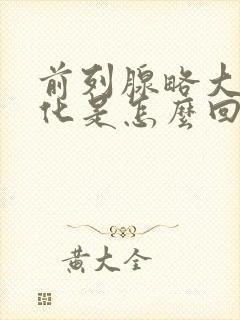 前列腺略大
化是怎麼回
黄大全